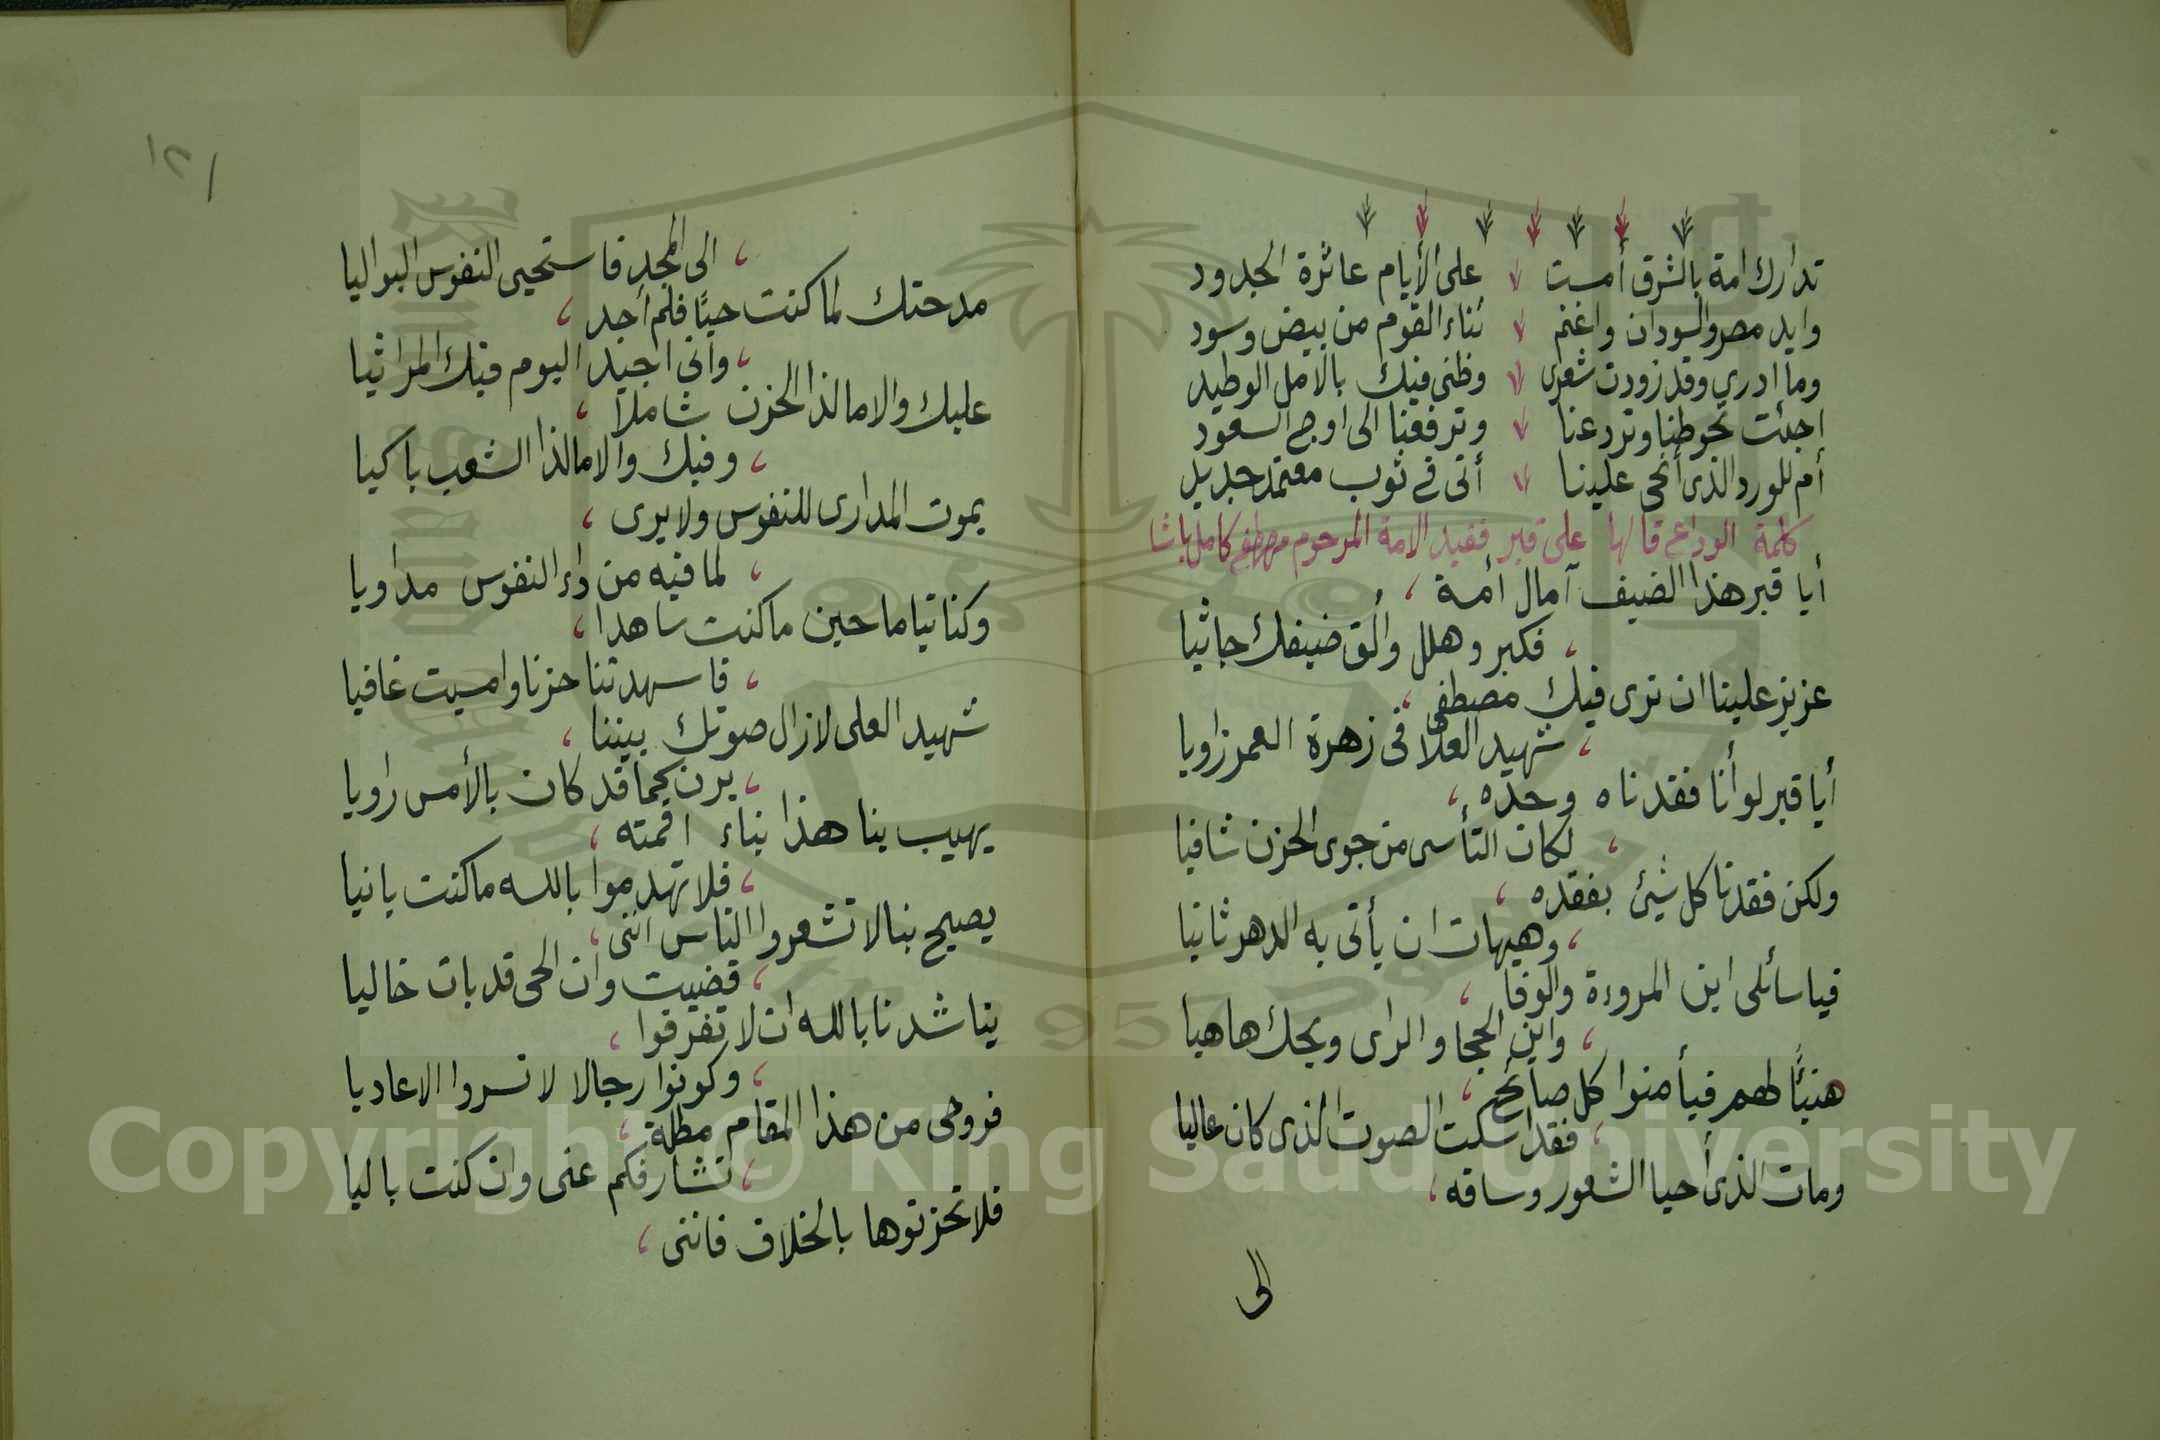 تدارك امة بالشرق أمست على الأيام عاثرة الجدود
وايد مصر والسودان واغنم ثناء القوم من بيض وسود
وما ادرى وقد زودت شعرى وظنى فيك بالامل الوطيد
اجئت تحوطنا وتردعنا وترفعنا الى اوج السعود
أم للورد الذى أنحى علينا أتى فى ثوب معتمد جديد
كلمة الوداع قالها على قبر فقيد الامة المرحوم مصطفى كامل باشا
أيا قبر هذا الضيف آمال أمة ،
، فكبر وهلل وألق ضيفك جاثيا
عزيز علينا ان نرى فيك مصطفى ،
، شهيد العلا فى زهرة العمر زاويا
أيا قبر لو أنا فقدناه وحده ،
، لكان التأسى من جوى الحزن شافيا
ولكن فقدنا كل شيئ بفقده ،
، وهيهات ان يأتى به الدهر ثانيا
فيا سائلى اين المروءة والوفا ،
، واين الحجا والراى ويحك هاهيا
هنيئًا لهم فيأمنوا كل صائح ،
، فقد اسكت الصوت الذى كان عاليا
ومات الذى أحيا الشعور وساقه ،
الى
١٢١
، الى المجد فاستحيى النفوس البواليا
مدحتك لما كنت حيًا فلم أجد ،
، وأنى اجيد اليوم فيك المراثيا
عليك والا مالذا الحزن شاملا ،
، وفيك والا مالذا الشعب باكيا
يموت المدارى للنفوس ولا يرى ،
، لما فيه من داء النفوس مداويا
وكنا نياما حين ما كنت ساهدا ،
، فاسهدتنا حزنا وامسيت غافيا
شهيد العلى لازال صوتك بيننا ،
، يرن كما قد كان بالأمس راويا
يهيب بنا هذا بناء اقمته ،
، فلا تهدموا بالله ما كنت بانيا
يصيح بنا لا تشعروا الناس اننى ،
، قضيت وان الحى قد بات خاليا
يناشدنا بالله ان لا تفرقوا ،
، وكونوا رجالا لا تسروا الاعاديا
فروحى من هذا المقام مطلة ،
، تشارفكم عنى وان كنت باليا
فلا تحزنوها بالخلاف فاننى ،
Copyright © King Saud University
King Saud University
1957